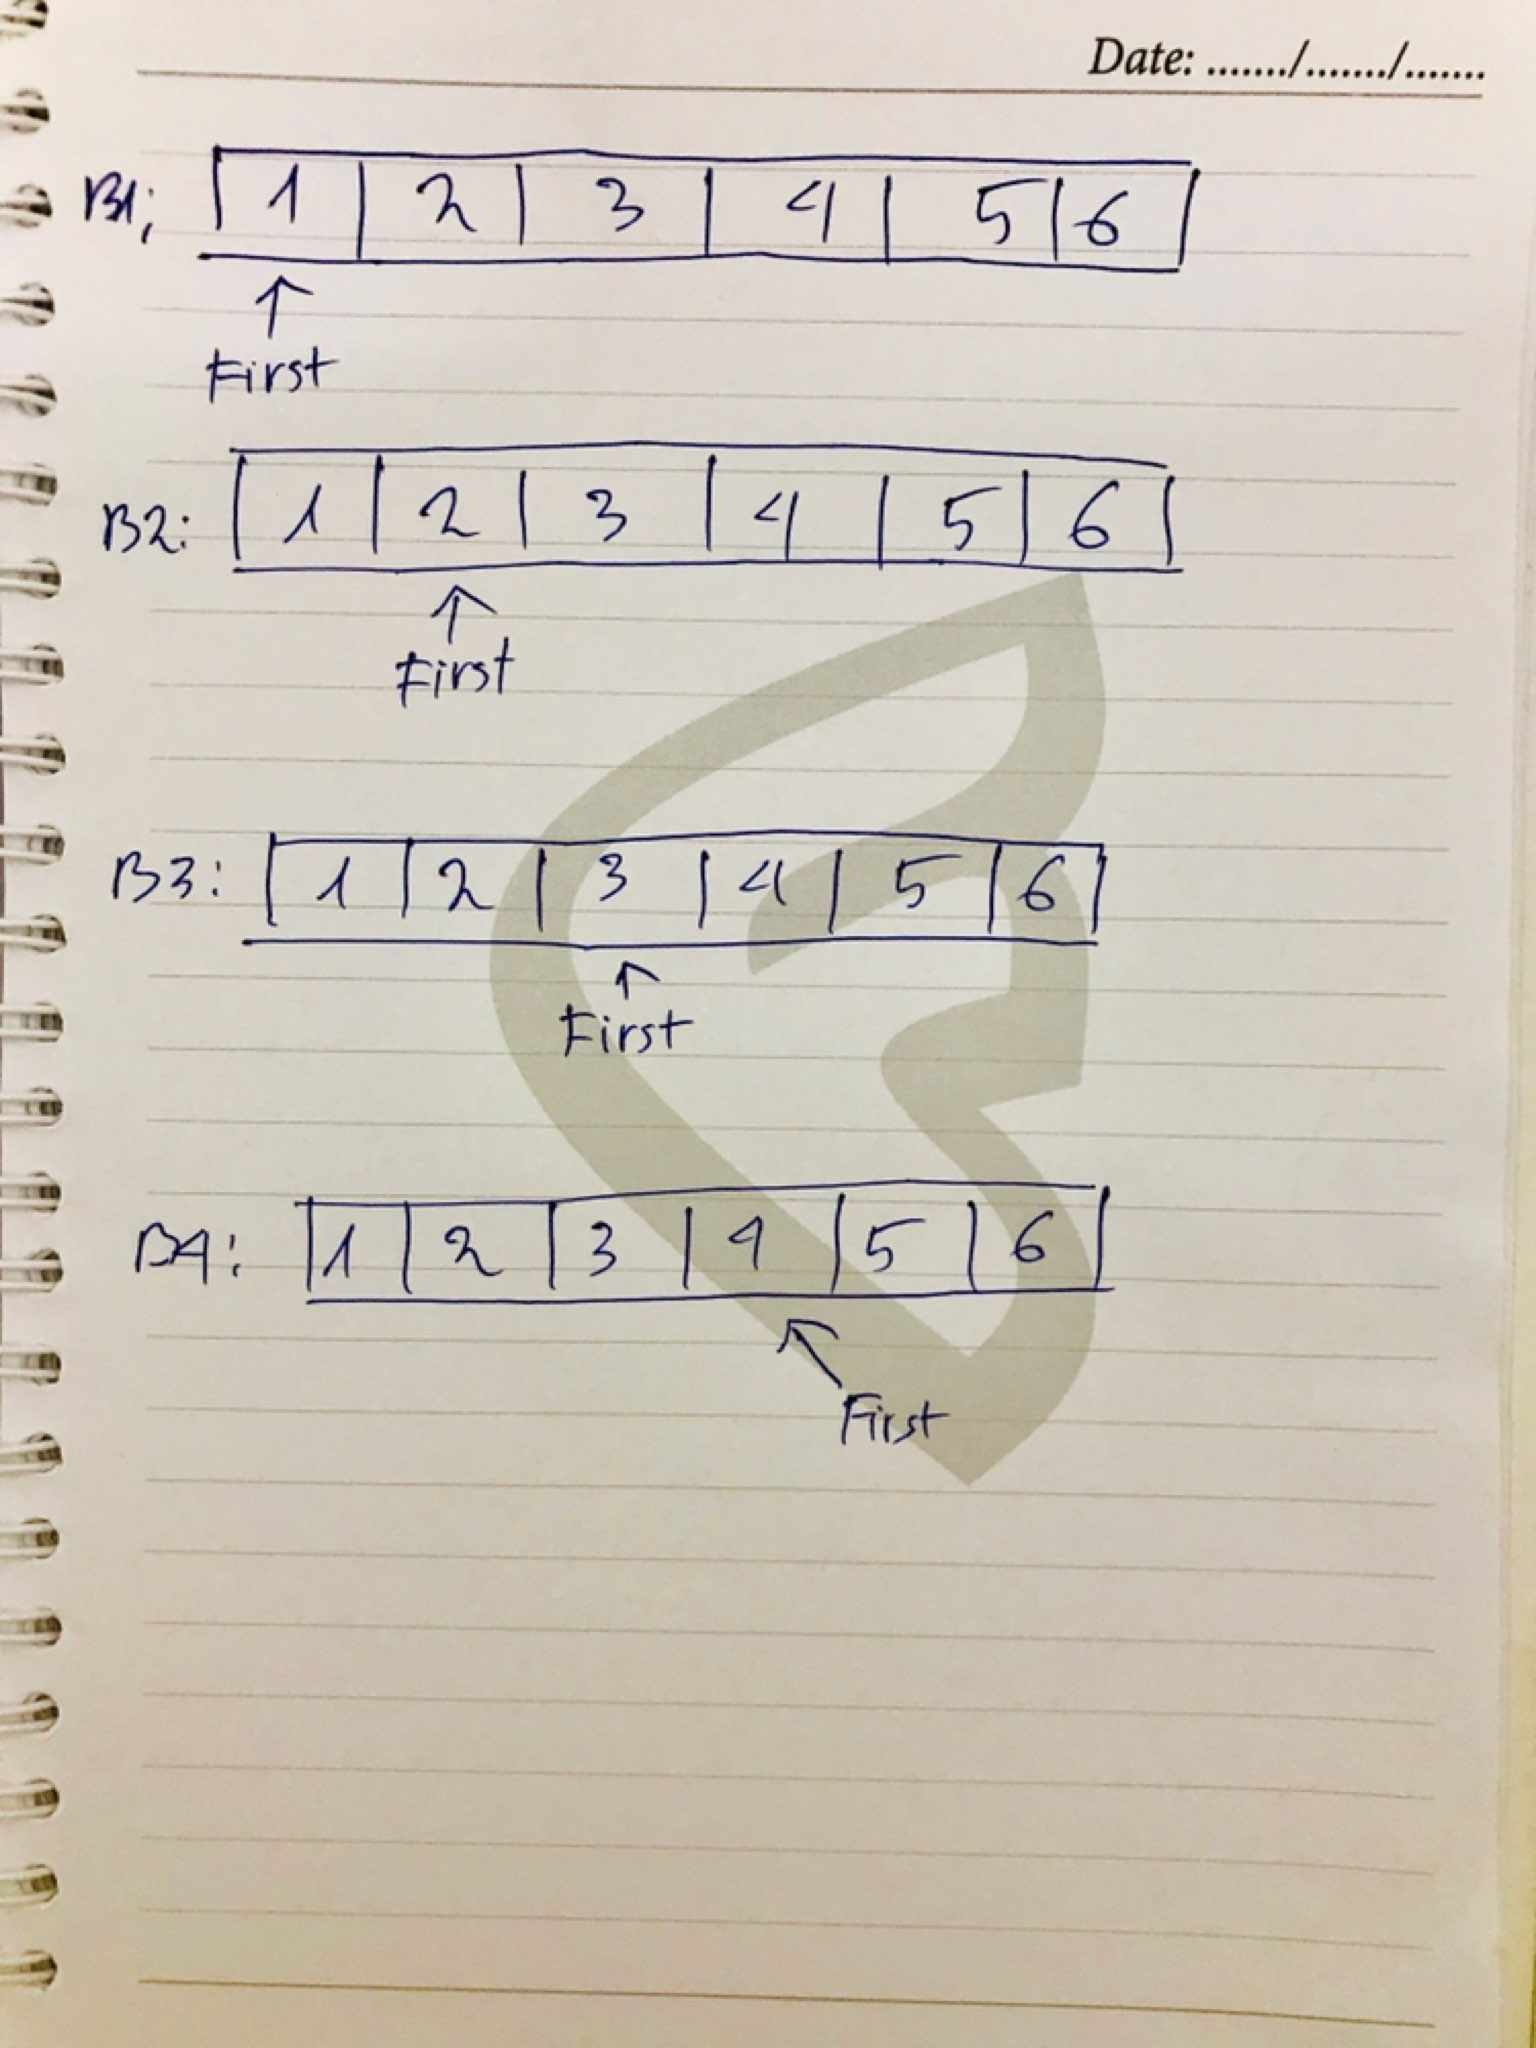 Date: ......./......./.......
B1; 1 2 3 4 5 6
First
B2: 1 2 3 4 5 6
First
B3: 1 2 3 4 5 6
First
B4: 1 2 3 4 5 6
First